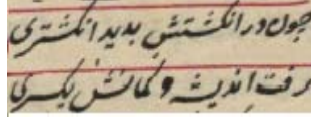 چون در انگشتش بدید انگشتری
رفت اندیشه و کمانش یکسری